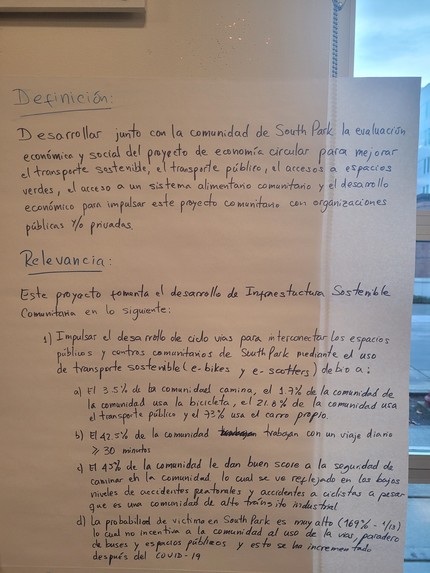 Definición:
Desarrollar junto con la comunidad de South Park la evaluación
económico y social del proyecto de economía circular para mejorar
el transporte sostenible, el transporte público, el accesos a espacios
verdes, el acceso a un sistema alimentario comunitario y el desarollo
económico para impulsar este proyecto comunitario con organizaciones
públicas y/o privadas.
Relevancia:
Este proyecto fomenta el desarrollo de Infraestuctura Sostenible
Comunitaria en lo siguiente:
1) Impulsar el desarrollo de ciclo vías para interconectar los espacios
públicos y centros comunitarios de South Park mediante el uso
de transporte sostenible (e-bikes y e-scotters) debio a:
a) El 3.5% de la comunidad camina, el 1.7% de la comunidad de
la comunidad usa la bicicleta, el 21.8% de la comunidad usa
el transporte público y el 73% usa el carro propio.
b) El 42.5% de la comunidad trabajan con un viaje diario
≥ 30 minutos
c) El 45% de la comunidad le dan buen score a la seguridad de
caminar en la comunidad, lo cual se ve reflejado en los bajos
niveles de accidentes peatonales y accidentes a ciclistas a pesar
que es una comunidad de alto tránsito industrial
d) La probabilidad de victima en South Park es muy alto (169% - 1/13)
lo cual no incentiva a la comunidad al uso de la vias, paradero
de buses y espacios públicos y esto se ha incrementado
después del COVID-19